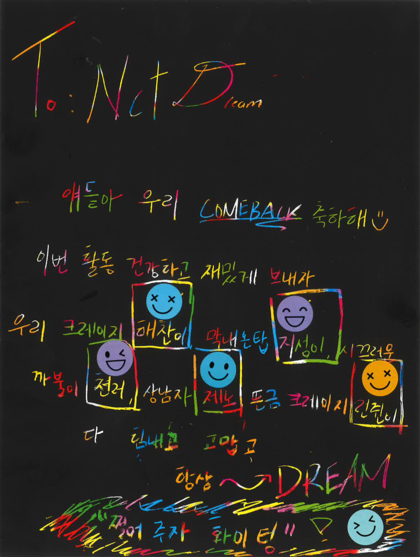 To: Nct Dream
얘들아 우리 COMEBACK 축하해
이번 활동 건강하고 재밌게 보내자
우리 크레이지 해찬이, 막내온탑 지성이, 시끄러운
까불이 천러, 상남자 제노 뜬금 크레이지 런쥔이
다 힘내고 고맙고
항상 DREAM
"찢어 주자 화이팅"